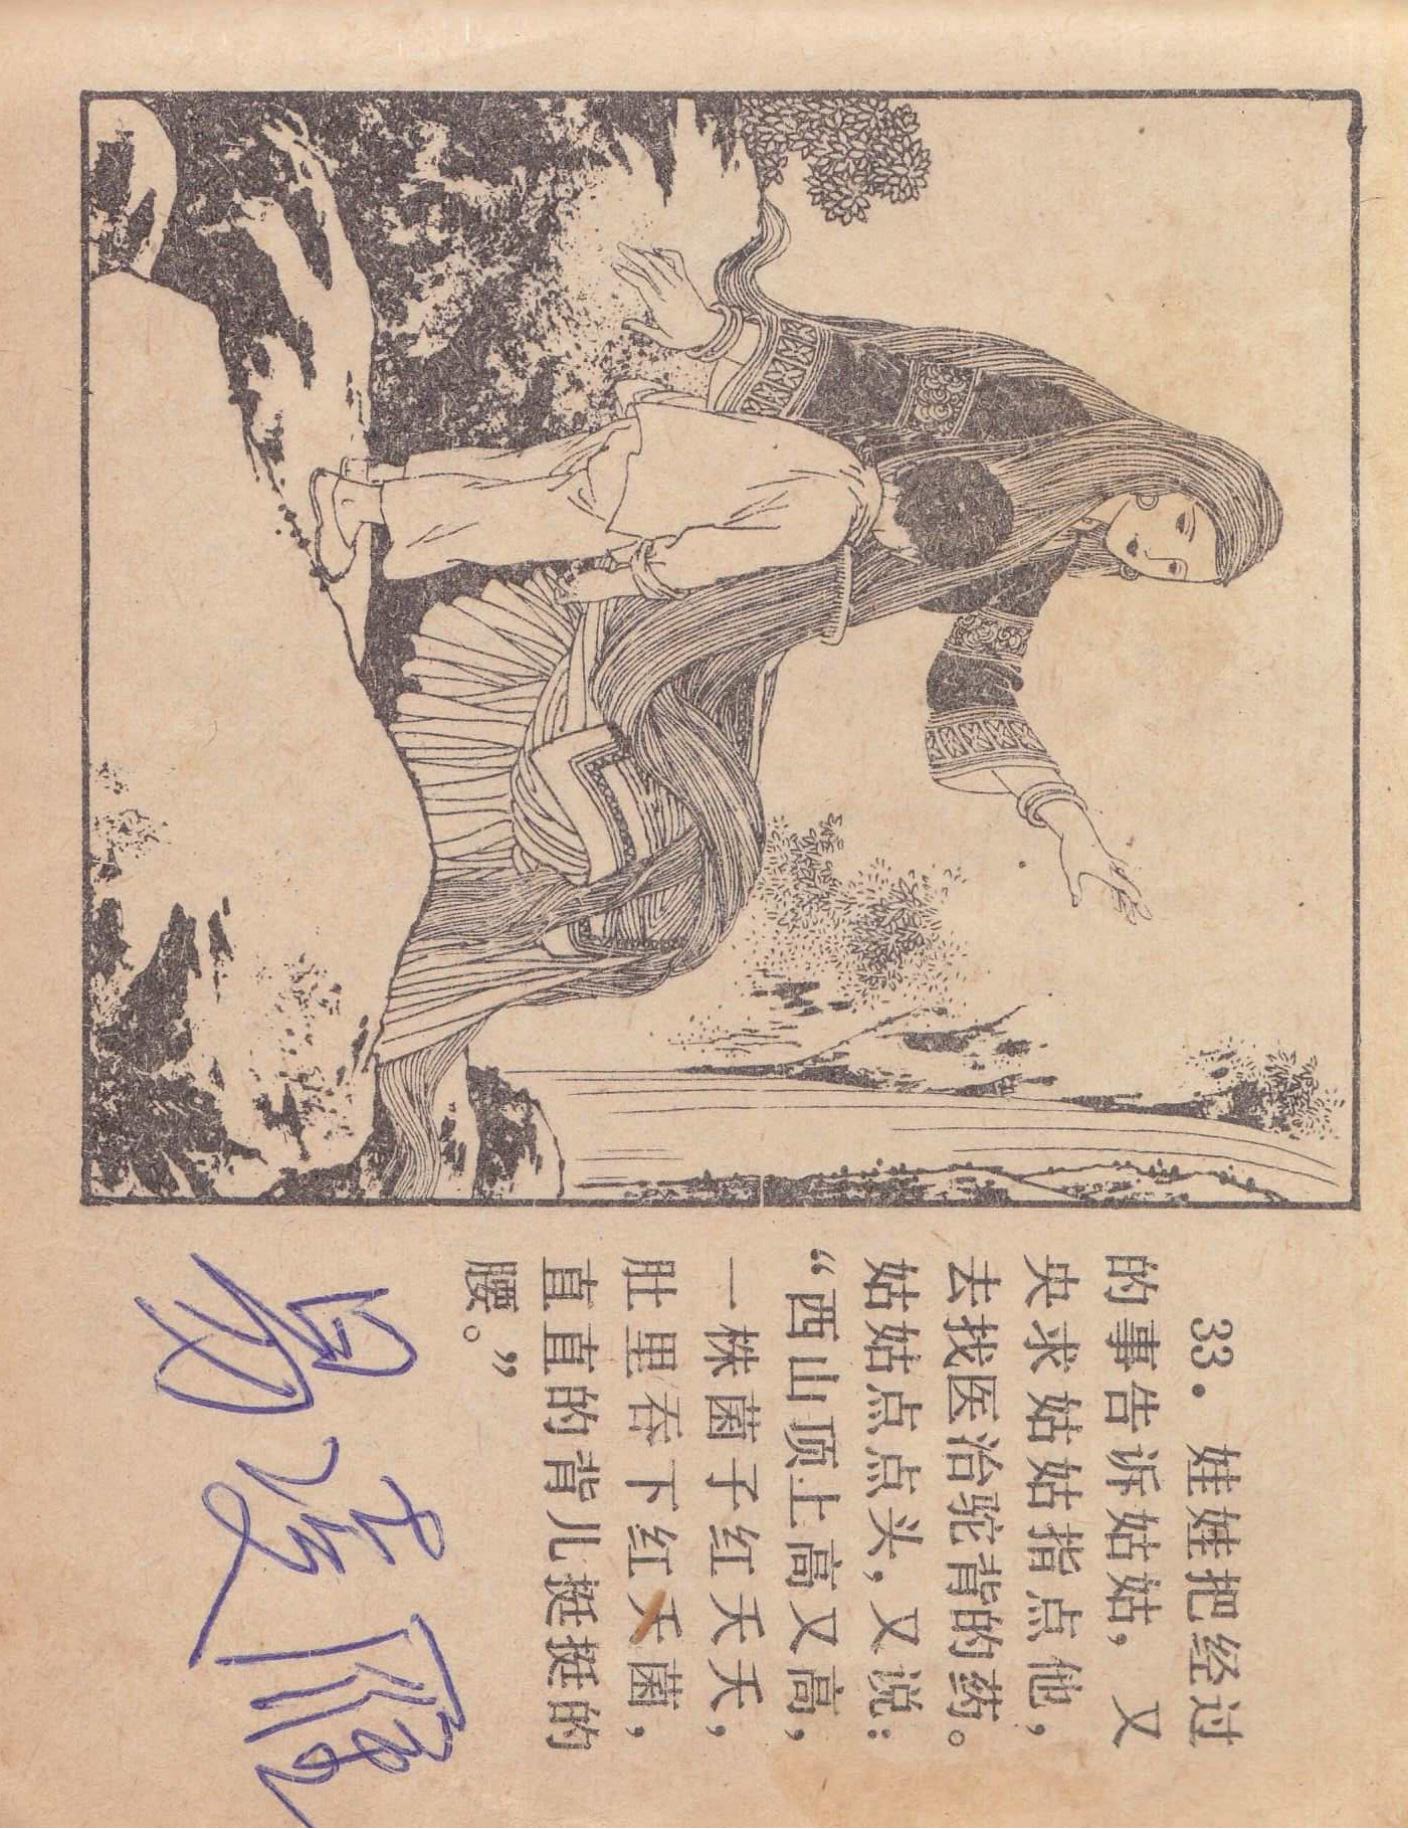 33. 娃娃把经过
的事告诉姑姑，又
央求姑姑指点他，
去找医治驼背的药。
姑姑点点头，又说：
“西山顶上高又高，
一株菌子红夭夭，
肚里吞下红夭菌，
直直的背儿挺挺的
腰。”